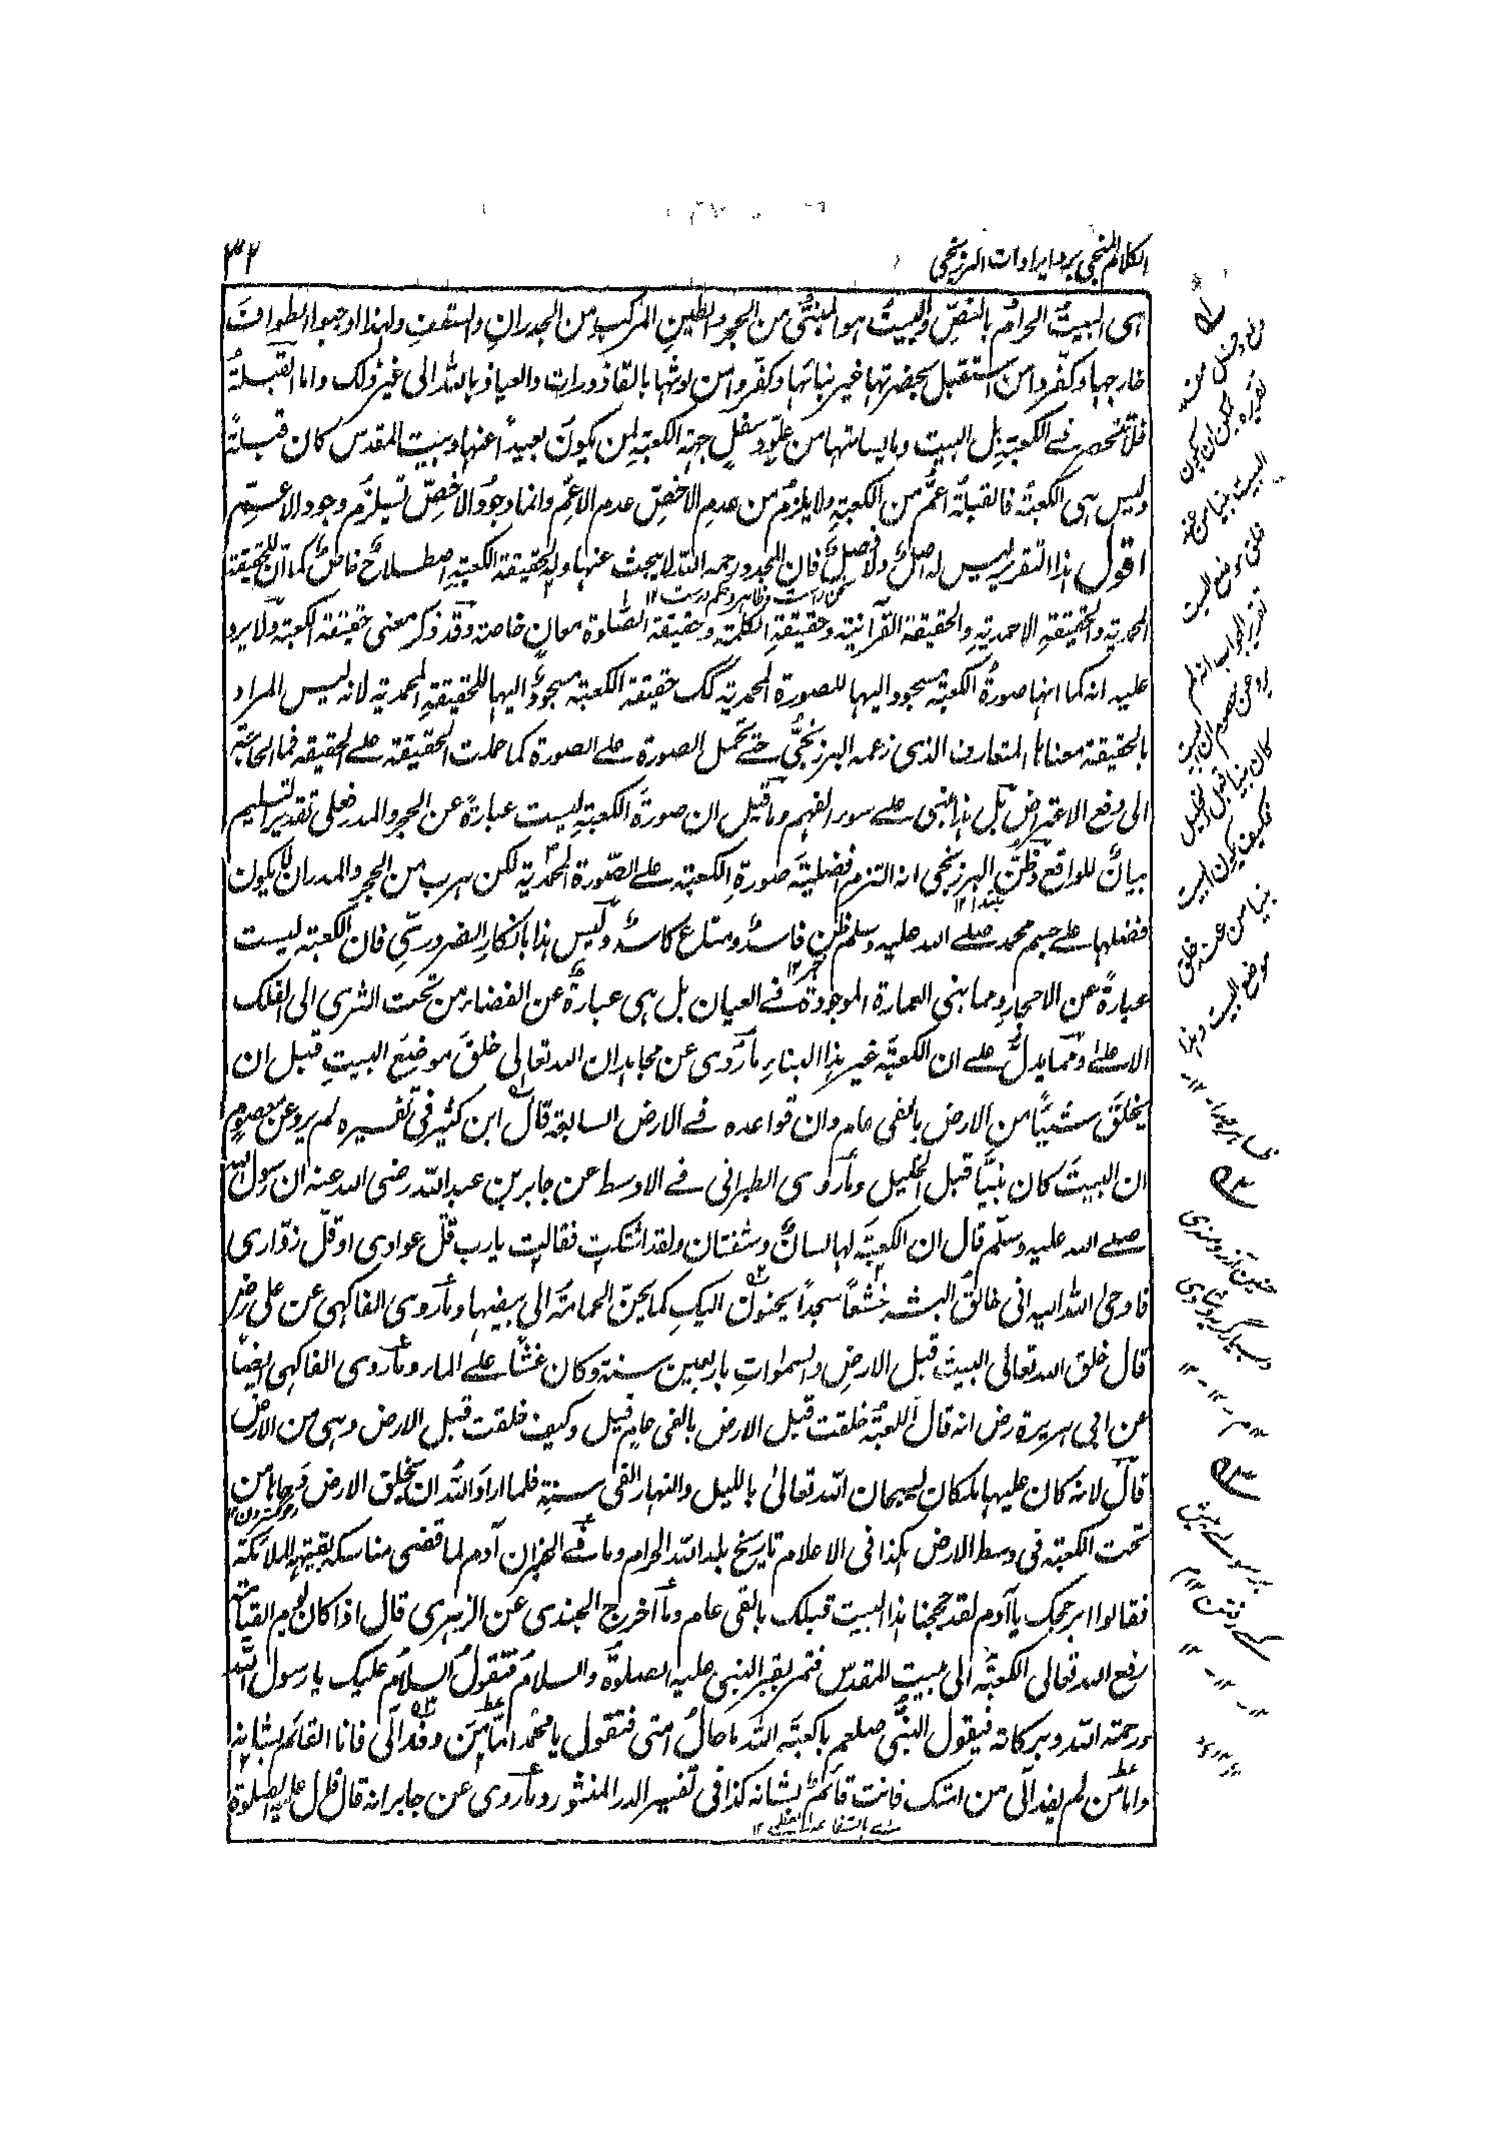 الكلام المنجي برد ايرادات البرزنجي
٣٢
هى البيتُ الحرامُ بالنصِّ والبيتُ هو المبنىُّ من الحجر والطين المركب من الجدرانِ والسقفِ ولهذا اوجبوا الطوافَ
خارجها وكفّروا من استقبل بحضرتها غير بنائها وكفّروا من لوثها بالقاذورات والعياذ بالله الى غير ذلك واما القبلةُ
فلا تنحصر فے الكعبة بل البيت وما يسامتها من علوٍّ وسفلٍ جهة الكعبة لمن يكونُ بعيداً عنها وبيت المقدس كان قبلةً
وليس هى الكعبةُ فالقبلةُ اعمُّ من الكعبةِ ولا يلزمُ من عدمِ الاخصِّ عدم الاعمِّ وانما وجودُ الاخصِّ يستلزم وجود الاعمِّ
اقول هذا التقرير ليس له اصلٌ ولا فصلٌ فان المجدد رحمه الله لا يبحث عنها وله لحقيقة الكعبةِ اصطلاحٌ خاصٌ كما ان للحقيقة
المحمدية والحقيقةِ الاحمديةِ والحقيقة القرآنيةِ وحقيقةِ الكلمة وحقيقة الصّلوة معانٍ خاصة وقد ذكر معنى حقيقة الكعبة ولا يرد
عليه انه كما انها صورةُ الكعبة مسجود اليها للصورة المحمدية كك حقيقة الكعبة مسجودٌ اليها للحقيقةِ المحمدية لانه ليس المراد
بالحقيقة معناها المتعارف الذى زعمه البرزنجىُّ حتے تحمل الصورة علے الصورة كما حملت الحقيقة علے الحقيقة فما الحاجة
الى دفع الاعتراض بل هذا مبنى علے سوء الفهم وما قيل ان صورةَ الكعبةِ ليست عبارةً عن الحجر والمدر فعلى تقدير التسليم
بيانٌ للواقع وظنّ البرزنجى انه التزم افضليةَ صورةِ الكعبة علے الصّورة المحمدية لكن هرب من الحجر والمدر لان لا يكون
فضلها علے جسم محمد صلے الله عليه وسلم ظن فاسدٌ ومتاع كاسدٌ وليس هذا بانكارِ الضرورىّ فان الكعبة ليست
عبارةً عن الاحجار ومبانى العمارة الموجودة فے العيان بل هى عبارةٌ عن الفضاء من تحت الثرى الى الفلك
الاعلےٰ ومما يدلُّ علے ان الكعبةَ غير هذا البناء ما رُوى عن مجاهد ان الله تعالى خلقَ موضعَ البيتِ قبل ان
يخلقَ شيئًا من الارض بالفى عام وان قواعده فے الارض السابعة قال ابن كثير فى تفسيره لم يرو عن معصومٍ
ان البيتَ كان مبنيًّا قبل الخليل وما روى الطبرانى فے الاوسط عن جابر بن عبد الله رضى الله عنه ان رسول الله
صلے الله عليه وسلّم قال ان الكعبةَ لها لسانٌ وشفتان ولقد اشتكت فقالت يارب قلّ عوادى وقلّ زوّارى
فاوحى اللهُ اليها انى خالقُ البشر خشعاً سجداً يحنون اليكِ كما يحنّ الحمامةُ الى بيضها وما روى الفاكهى عن على رض
قال خلق الله تعالى البيتَ قبل الارضِ والسمٰواتِ باربعين سنةً وكان غشاءً علے الماء وما روى الفاكهى ايضًا
عن ابى هريرة رض انه قال الكعبةُ خلقت قبل الارض بالفى عام قيل وكيف خلقت قبل الارض وهى من الارض
قال لانه كان عليها ملكان يسبحان الله تعالىٰ بالليل والنهار الفى سنةٍ فلما اراد اللهُ ان يخلق الارض دحاها من
تحت الكعبة فى وسط الارض هكذا فى الاعلام تاريخ بلد الله الحرام وما فے الخبر ان آدم لما قضى مناسكه لقيته الملائكة
فقالوا ابر حجك يا آدم لقد حججنا هذا البيت قبلك بالفى عام وما اخرج الجندى عن الزهرى قال اذا كان يوم القيامة
رفع الله تعالى الكعبةَ الى بيت المقدس فتمر بقبر النبى عليه الصلوةُ والسلامُ فتقولُ السلامُ عليك يا رسول الله
ورحمة الله وبركاته فيقول النبىُّ صلعم يا كعبةَ الله ما حالُ امتى فتقول يا محمدُ اما من وفد الىّ فانا القائم بشانه
واما من لم يفد الىّ من امتك فانت قائمٌ لشانه كذا فى تفسير الدر المنثور وما روى عن جابر انه قال قال عليه الصلوة